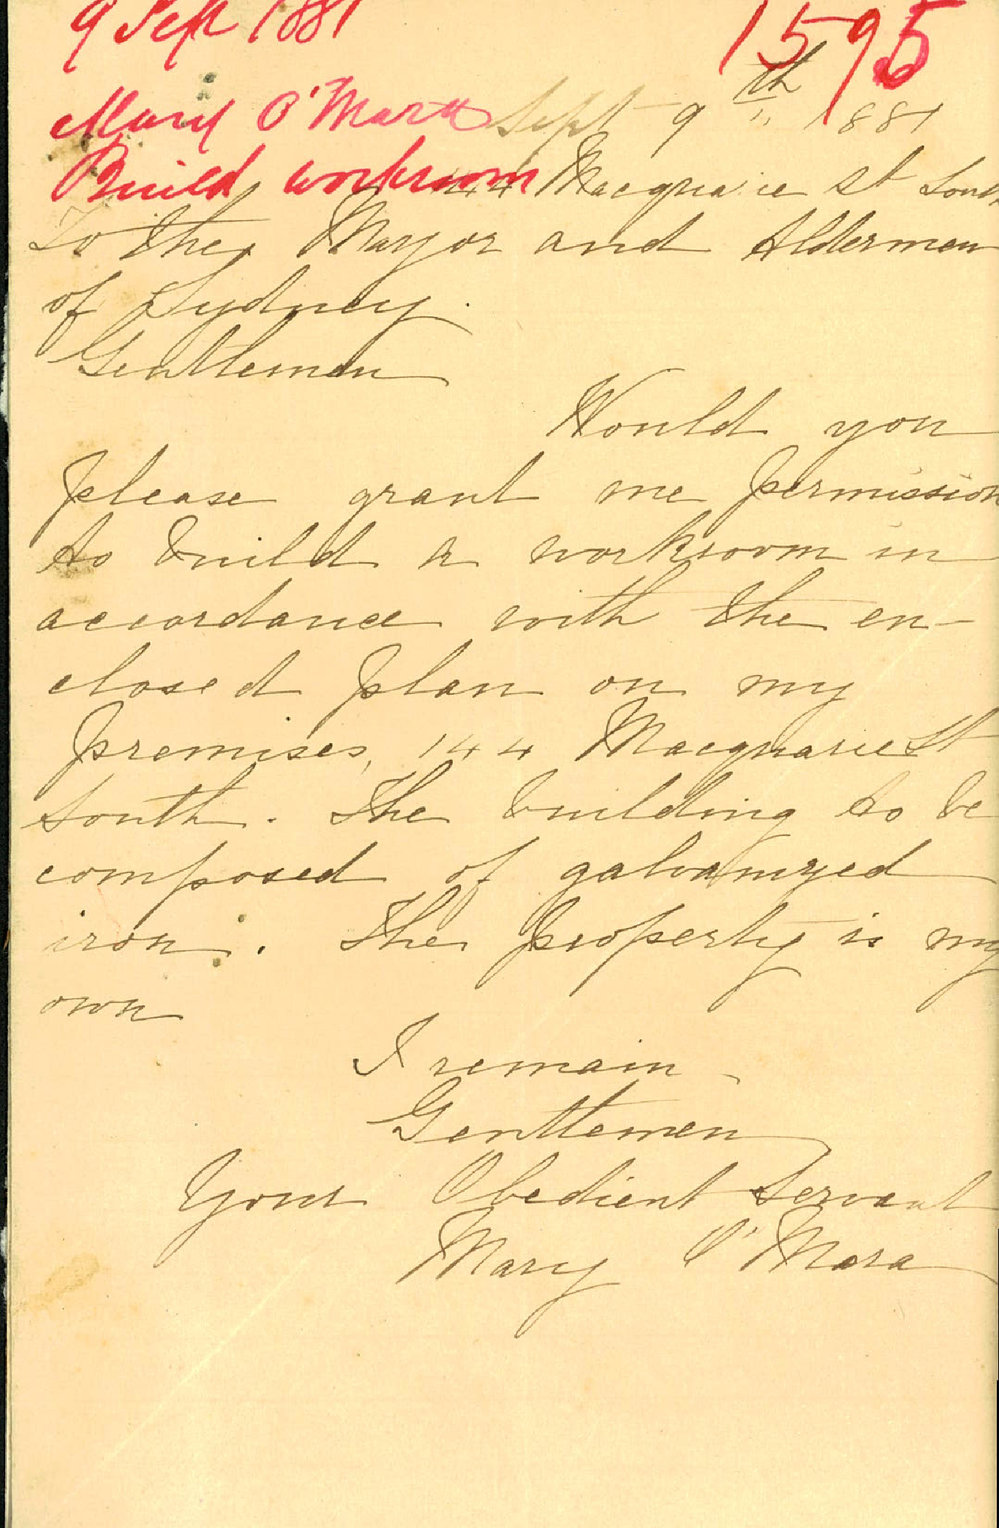 9 Sept 1881
1595
Mary O'Mara
Sept 9th 1881
Build workroom
144 Macquarie St South
To the Mayor and Aldermen
of Sydney.
Gentlemen
Would you
please grant me permission
to build a workroom in
accordance with the en-
closed plan on my
premises, 144 Macquarie St
South. The building to be
composed of galvanized
iron. The property is my
own
I remain
Gentlemen
Your Obedient Servant
Mary O'Mara